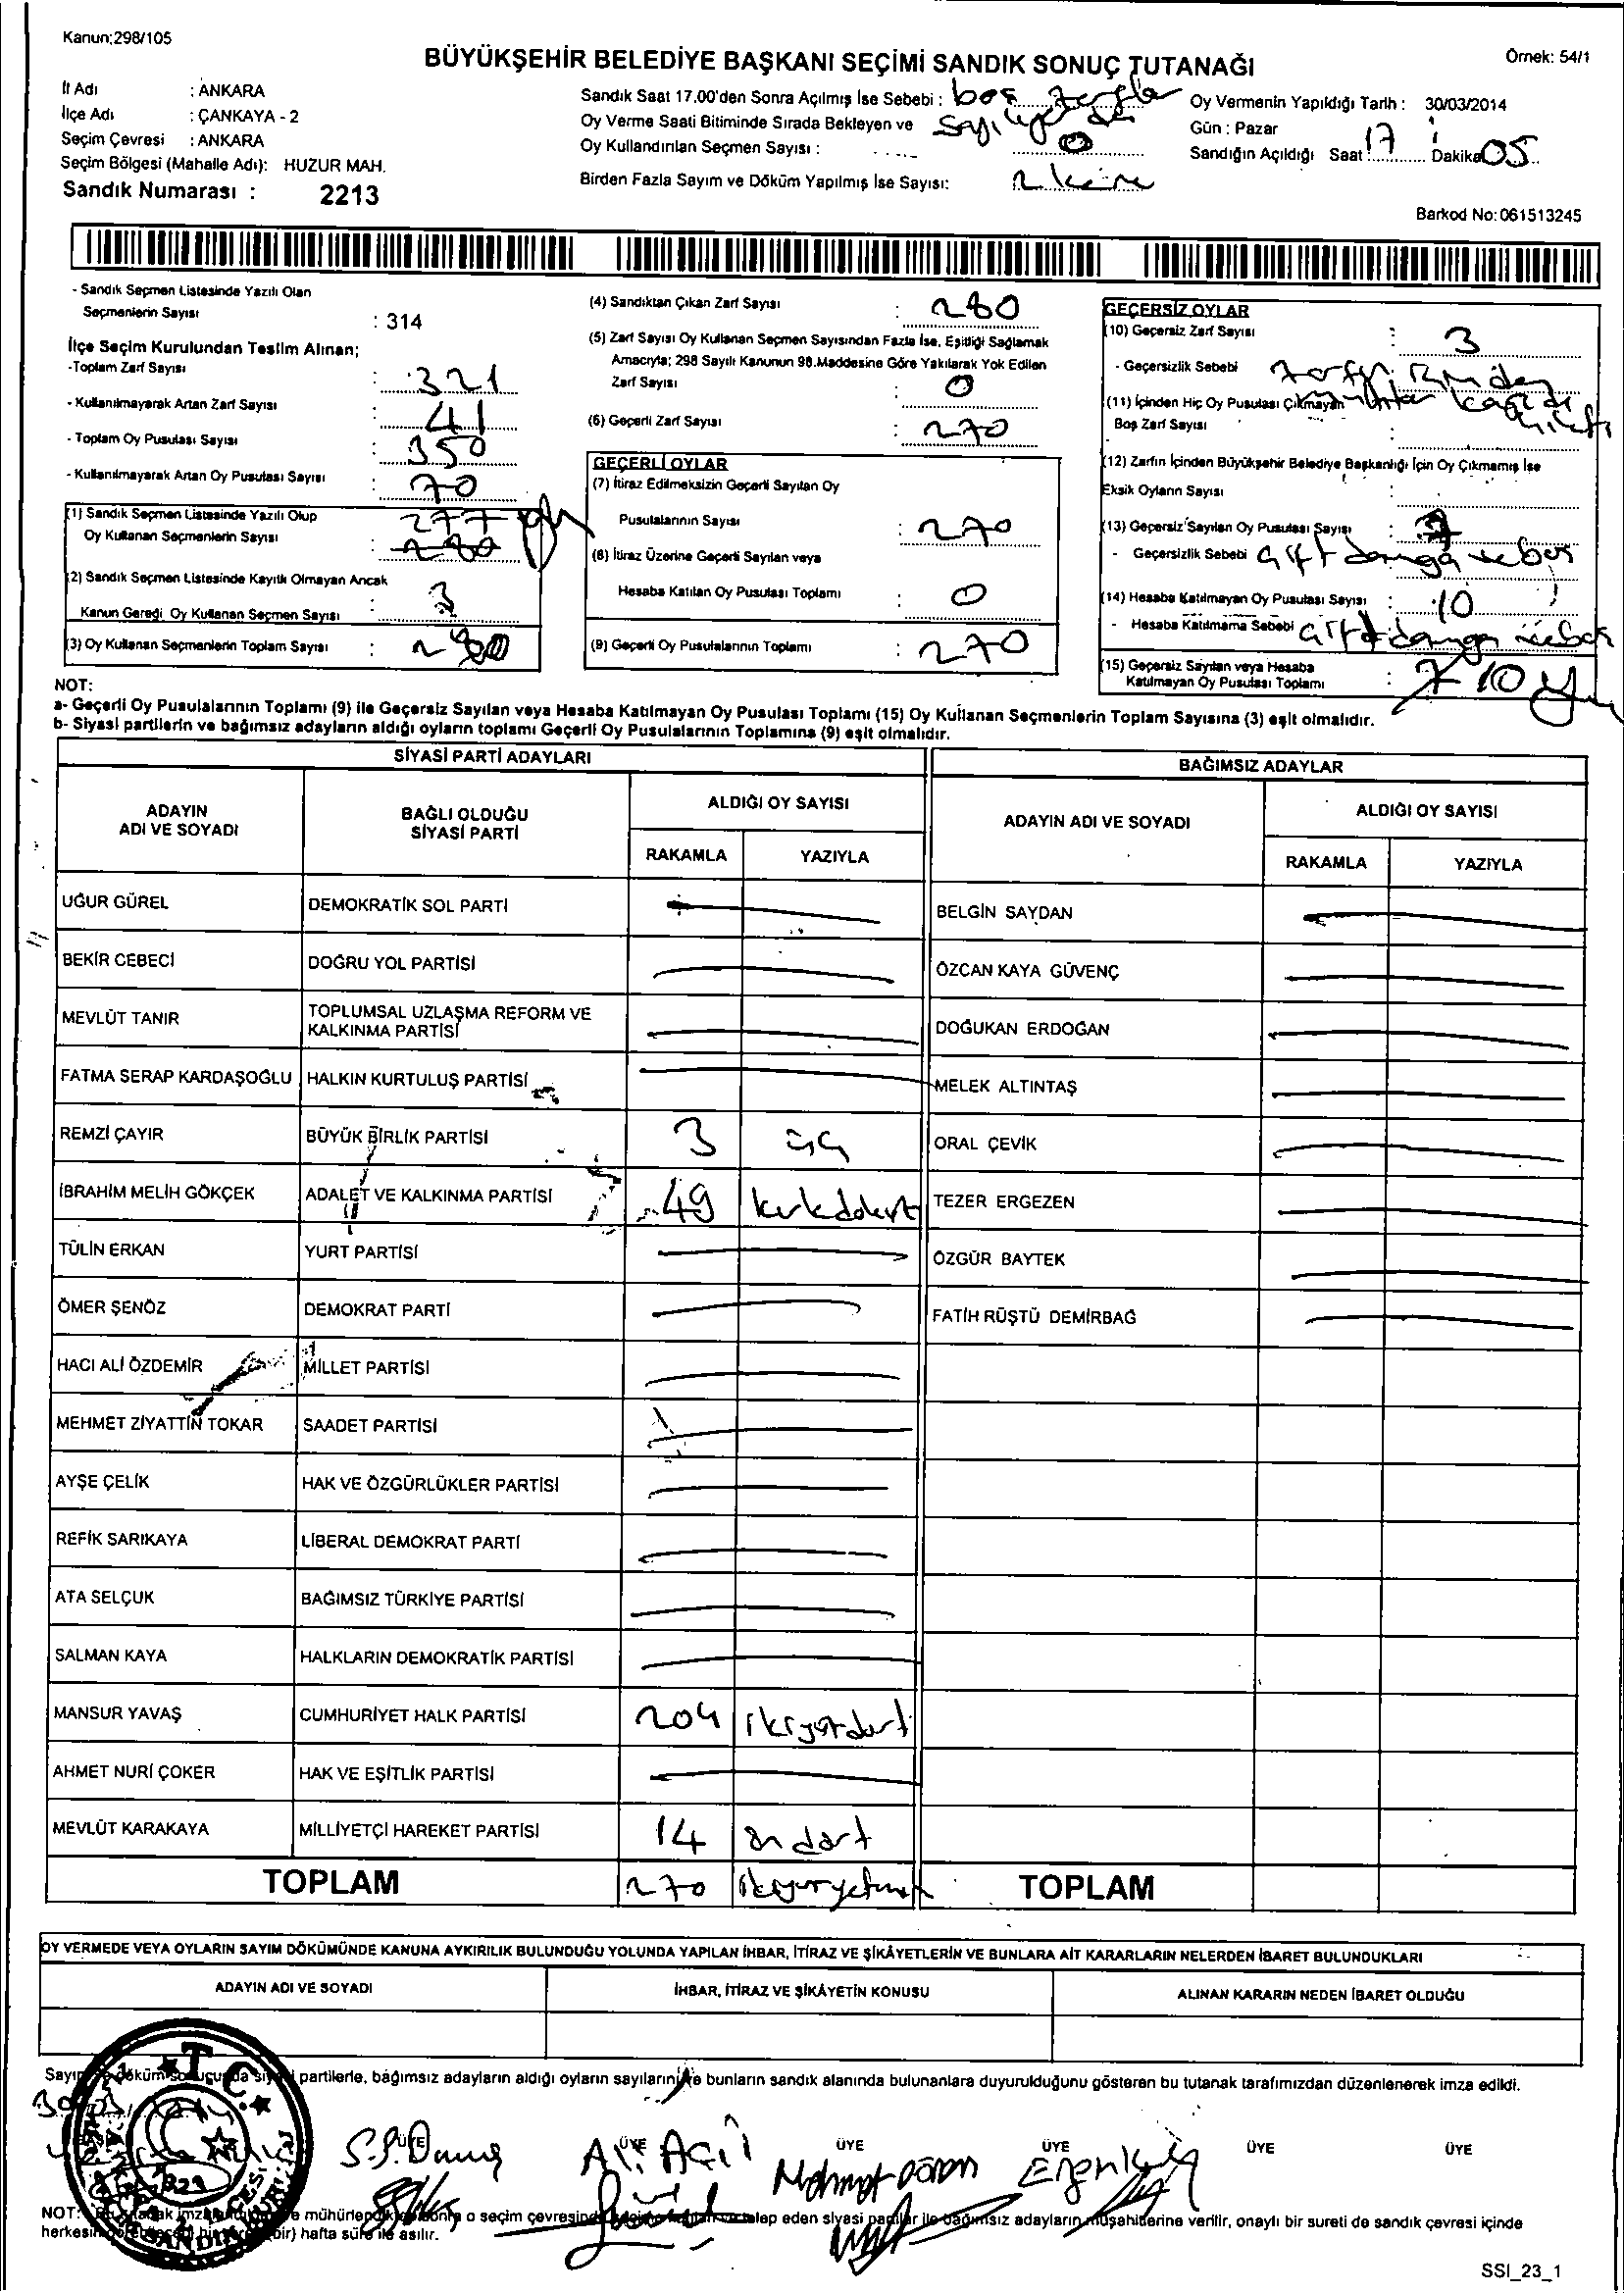 Kanun;298/105
BÜYÜKŞEHİR BELEDİYE BAŞKANI SEÇİMİ SANDIK SONUÇ TUTANAĞI
Örnek: 54/1
İl Adı : ANKARA
İlçe Adı : ÇANKAYA - 2
Seçim Çevresi : ANKARA
Seçim Bölgesi (Mahalle Adı): HUZUR MAH.
Sandık Numarası : 2213
Sandık Saat 17.00'den Sonra Açılmış İse Sebebi : boş
Oy Verme Saati Bitiminde Sırada Bekleyen ve
Oy Kullandırılan Seçmen Sayısı : 0
Birden Fazla Sayım ve Döküm Yapılmış İse Sayısı: 2 kere
Oy Vermenin Yapıldığı Tarih : 30/03/2014
Gün : Pazar
Sandığın Açıldığı Saat 17 Dakika 05
Barkod No: 061513245
- Sandık Seçmen Listesinde Yazılı Olan
Seçmenlerin Sayısı : 314
İlçe Seçim Kurulundan Teslim Alınan;
-Toplam Zarf Sayısı : 321
- Kullanılmayarak Artan Zarf Sayısı : 41
- Toplam Oy Pusulası Sayısı : 350
- Kullanılmayarak Artan Oy Pusulası Sayısı : 70
(1) Sandık Seçmen Listesinde Yazılı Olup
Oy Kullanan Seçmenlerin Sayısı : 277 280
(2) Sandık Seçmen Listesinde Kayıtlı Olmayan Ancak
Kanun Gereği Oy Kullanan Seçmen Sayısı : 3
(3) Oy Kullanan Seçmenlerin Toplam Sayısı : 280
(4) Sandıktan Çıkan Zarf Sayısı : 280
(5) Zarf Sayısı Oy Kullanan Seçmen Sayısından Fazla İse, Eşitliği Sağlamak
Amacıyla; 298 Sayılı Kanunun 98.Maddesine Göre Yakılarak Yok Edilen
Zarf Sayısı : 0
(6) Geçerli Zarf Sayısı : 270
GEÇERLİ OYLAR
(7) İtiraz Edilmeksizin Geçerli Sayılan Oy
Pusulalarının Sayısı : 270
(8) İtiraz Üzerine Geçerli Sayılan veya
Hesaba Katılan Oy Pusulası Toplamı : 0
(9) Geçerli Oy Pusulalarının Toplamı : 270
GEÇERSİZ OYLAR
(10) Geçersiz Zarf Sayısı : 3
- Geçersizlik Sebebi
(11) İçinden Hiç Oy Pusulası Çıkmayan
Boş Zarf Sayısı :
(12) Zarfın İçinden Büyükşehir Belediye Başkanlığı İçin Oy Çıkmamış İse
Eksik Oyların Sayısı :
(13) Geçersiz Sayılan Oy Pusulası Sayısı : 7
- Geçersizlik Sebebi çift damga ve boş
(14) Hesaba Katılmayan Oy Pusulası Sayısı : 10
- Hesaba Katılmama Sebebi çift damga
(15) Geçersiz Sayılan veya Hesaba
Katılmayan Oy Pusulası Toplamı : 7 10
NOT:
a- Geçerli Oy Pusulalarının Toplamı (9) ile Geçersiz Sayılan veya Hesaba Katılmayan Oy Pusulası Toplamı (15) Oy Kullanan Seçmenlerin Toplam Sayısına (3) eşit olmalıdır.
b- Siyasi partilerin ve bağımsız adayların aldığı oyların toplamı Geçerli Oy Pusulalarının Toplamına (9) eşit olmalıdır.
SİYASİ PARTİ ADAYLARI
BAĞIMSIZ ADAYLAR
ADAYIN ADI VE SOYADI
BAĞLI OLDUĞU SİYASİ PARTİ
ALDIĞI OY SAYISI
RAKAMLA YAZIYLA
ADAYIN ADI VE SOYADI
ALDIĞI OY SAYISI
RAKAMLA YAZIYLA
UĞUR GÜREL DEMOKRATİK SOL PARTİ BELGİN SAYDAN
BEKİR CEBECİ DOĞRU YOL PARTİSİ ÖZCAN KAYA GÜVENÇ
MEVLÜT TANIR TOPLUMSAL UZLAŞMA REFORM VE KALKINMA PARTİSİ DOĞUKAN ERDOĞAN
FATMA SERAP KARDAŞOĞLU HALKIN KURTULUŞ PARTİSİ MELEK ALTINTAŞ
REMZİ ÇAYIR BÜYÜK BİRLİK PARTİSİ 3 üç ORAL ÇEVİK
İBRAHİM MELİH GÖKÇEK ADALET VE KALKINMA PARTİSİ 49 TEZER ERGEZEN
TÜLİN ERKAN YURT PARTİSİ ÖZGÜR BAYTEK
ÖMER ŞENÖZ DEMOKRAT PARTİ FATİH RÜŞTÜ DEMİRBAĞ
HACI ALİ ÖZDEMİR MİLLET PARTİSİ
MEHMET ZİYATTİN TOKAR SAADET PARTİSİ
AYŞE ÇELİK HAK VE ÖZGÜRLÜKLER PARTİSİ
REFİK SARIKAYA LİBERAL DEMOKRAT PARTİ
ATA SELÇUK BAĞIMSIZ TÜRKİYE PARTİSİ
SALMAN KAYA HALKLARIN DEMOKRATİK PARTİSİ
MANSUR YAVAŞ CUMHURİYET HALK PARTİSİ 204 ikiyüzdört
AHMET NURİ ÇOKER HAK VE EŞİTLİK PARTİSİ
MEVLÜT KARAKAYA MİLLİYETÇİ HAREKET PARTİSİ 14 ondört
TOPLAM 270 ikiyüzyetmiş TOPLAM
OY VERMEDE VEYA OYLARIN SAYIM DÖKÜMÜNDE KANUNA AYKIRILIK BULUNDUĞU YOLUNDA YAPILAN İHBAR, İTİRAZ VE ŞİKÂYETLERİN VE BUNLARA AİT KARARLARIN NELERDEN İBARET BULUNDUKLARI
ADAYIN ADI VE SOYADI İHBAR, İTİRAZ VE ŞİKÂYETİN KONUSU ALINAN KARARIN NEDEN İBARET OLDUĞU
partilerle, bağımsız adayların aldığı oyların sayılarını ve bunların sandık alanında bulunanlara duyurulduğunu gösteren bu tutanak tarafımızdan düzenlenerek imza edildi.
T.C.
ÜYE ÜYE ÜYE ÜYE ÜYE ÜYE
Ali Açıl Mehmet
NOT: mühürlendikten sonra o seçim çevresinde talep eden siyasi partiler ile bağımsız adayların müşahitlerine verilir, onaylı bir sureti de sandık çevresi içinde
herkesin (bir) hafta süre ile asılır.
SSI_23_1